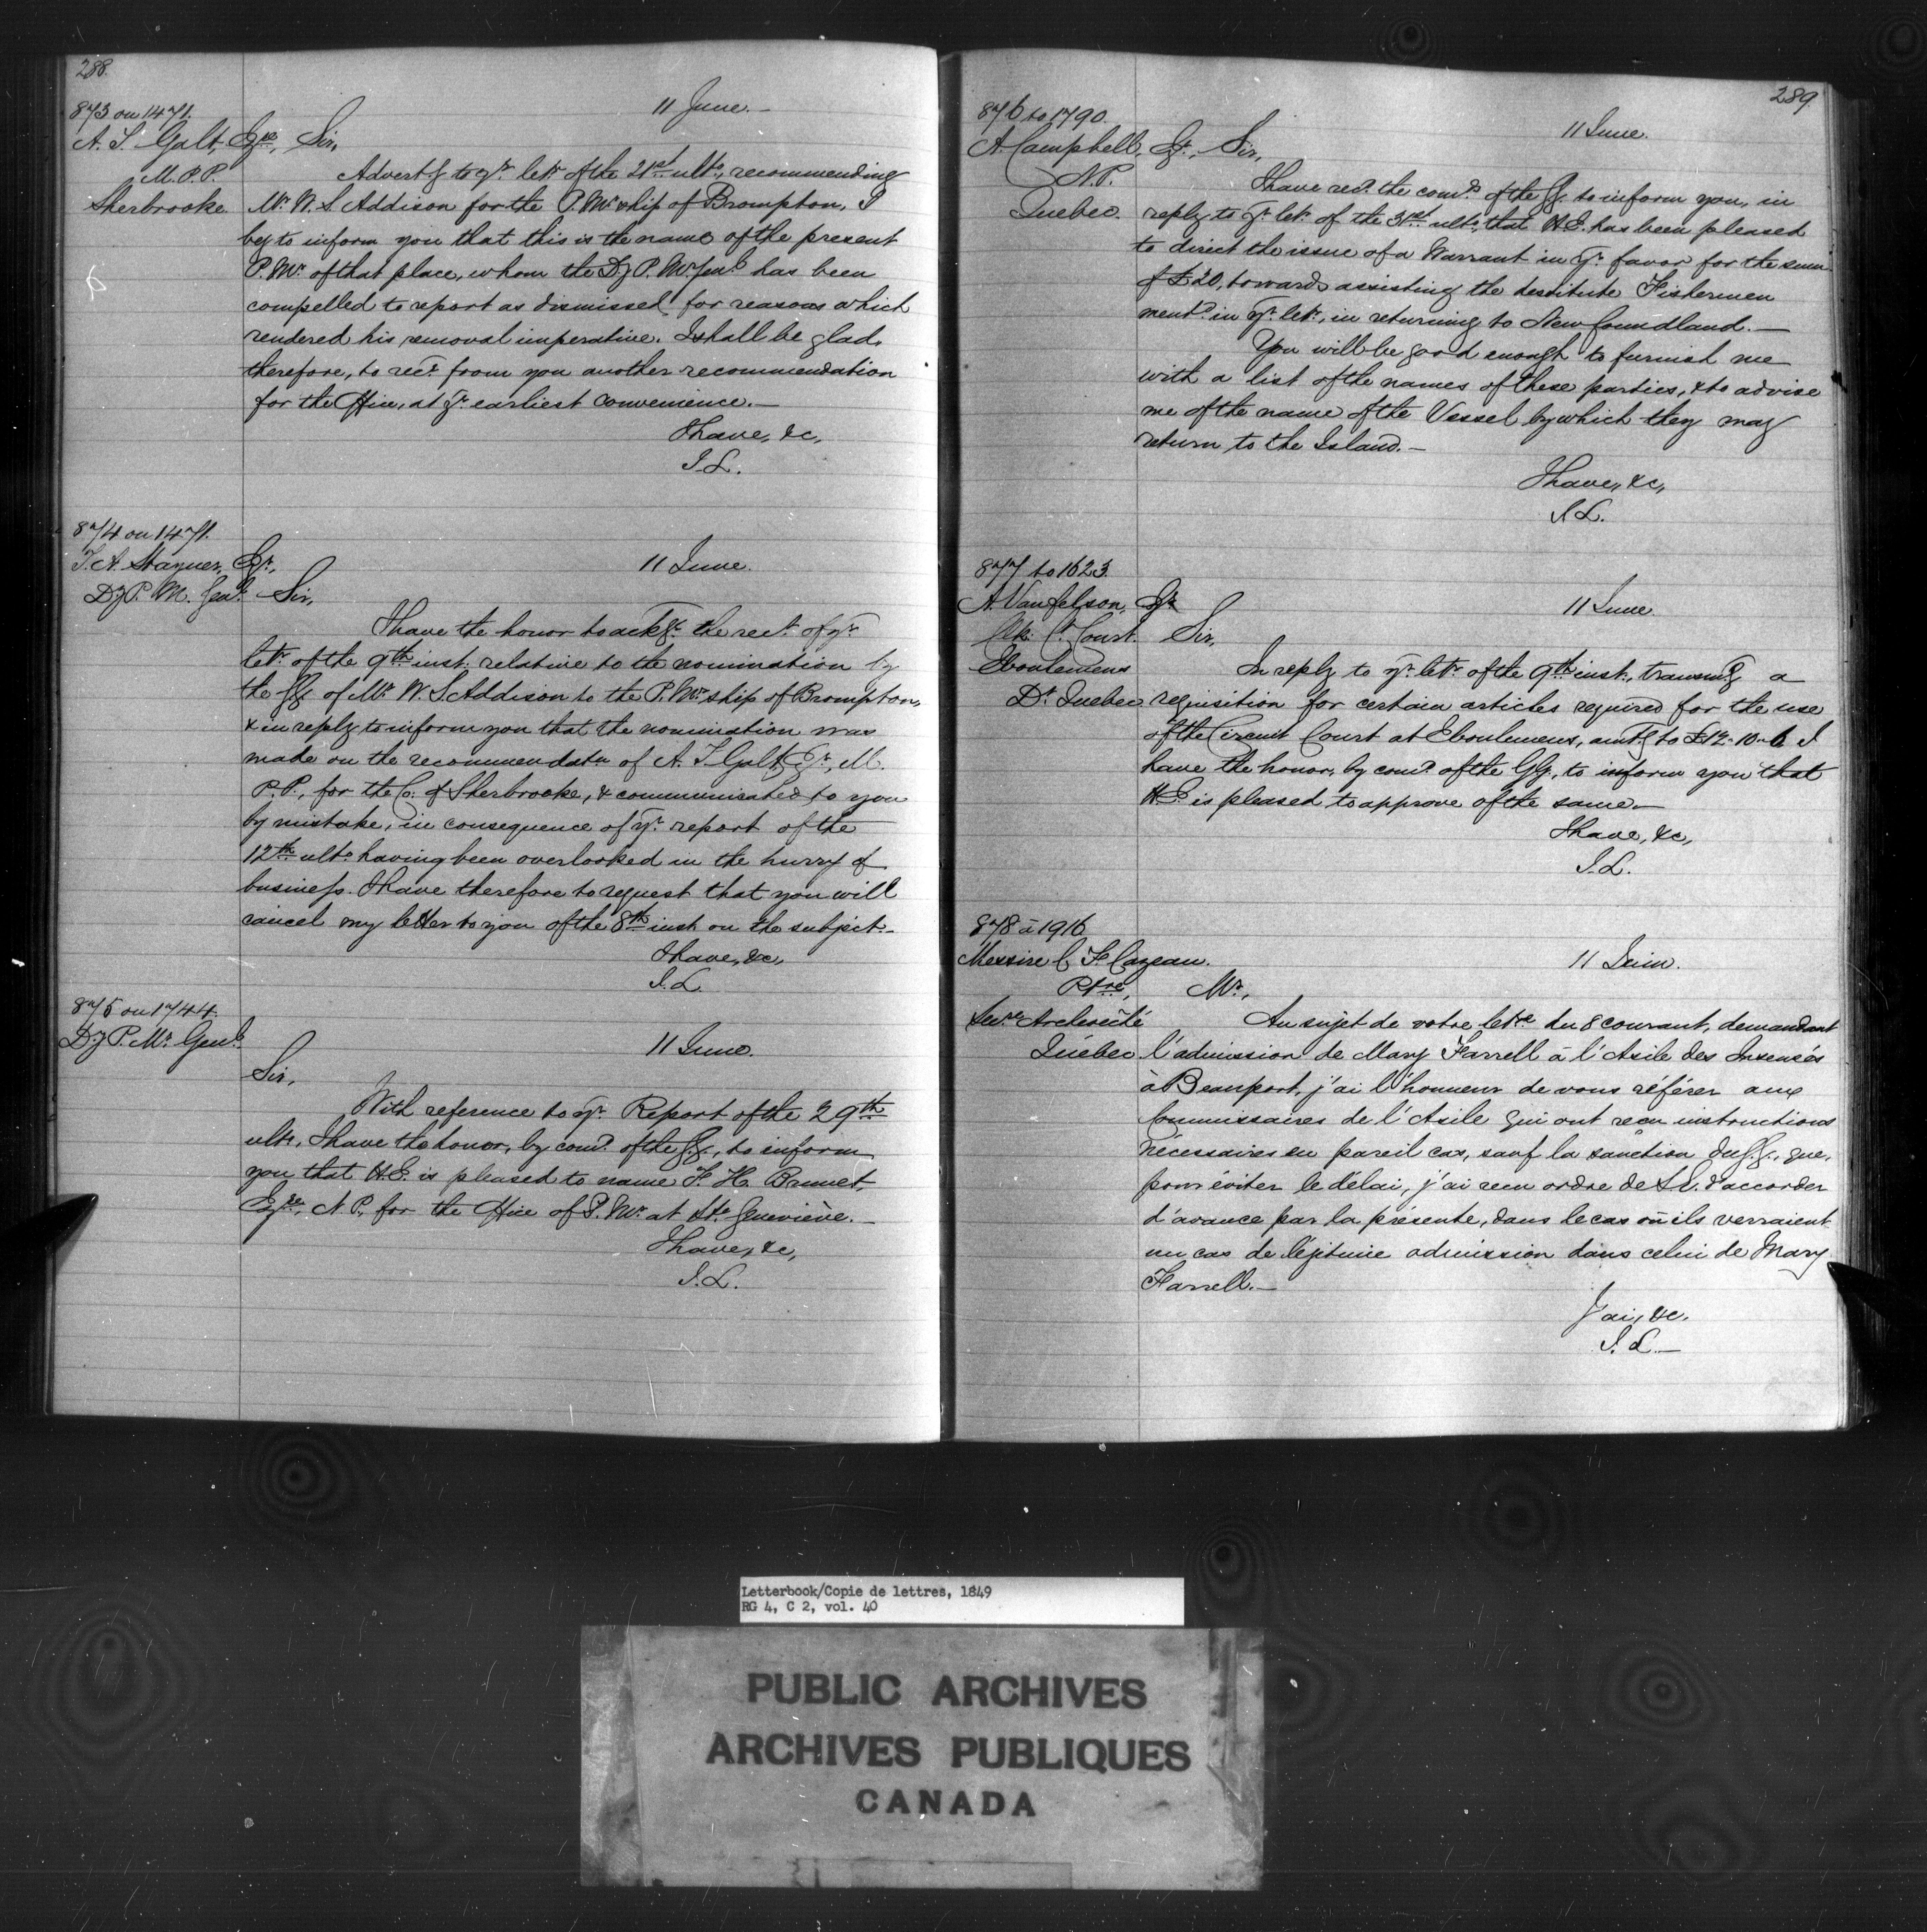 288.
873 on 1471.
11 June.
A. T. Galt, Esqre, Sir,
M.P.P.
Sherbrooke
Advertg to yr. letr of the 21st ulto, recommending
Mr. W. S. Addison for the P. Mr.ship of Brompton, I
beg to inform you that this is the name of the present
P. Mr. of that place, whom the Dy P. Mr. Genl. has been
compelled to report as dismissed for reasons which
rendered his removal imperative. I shall be glad,
therefore, to recv. from you another recommendation
for the Office, at yr. earliest convenience.—
I have, &c,
J. L.
874 on 1471.
T. A. Stayner, Esqr.,
Dy P. M. Genl.
11 June.
Sir,
I have the honor to ackge. the rect. of yr.
letr. of the 9th inst. relative to the nomination by
the GG. of Mr. W. S. Addison to the P. Mr. ship of Brompton,
& in reply to inform you that the nomination was
made on the recommendatn of A. T. Galt, Esqr., M.
P.P., for the Co. of Sherbrooke, & communicated to you
by mistake, in consequence of yr. report of the
12th ulto. having been overlooked in the hurry of
business. I have therefore to request that you will
cancel my letter to you of the 8th inst. on the subject.—
I have, &c,
J. L.
875 on 1744.
Dy P. Mr. Genl.
11 June.
Sir,
With reference to yr. Report of the 29th
ulto, I have the honor, by comd. of the G.G., to inform
you that H.E. is pleased to name F. H. Brunet,
Esqre, N.P. for the Office of P. Mr. at Ste. Geneviève.—
I have, &c,
J. L.
289.
876 to 1790.
A. Campbell, Esqr., Sir,
N.P.
Quebec.
11 June.
I have recd. the comds. of the GG. to inform you, in
reply to yr. letr. of the 31st ulto, that H.E. has been pleased
to direct the issue of a Warrant in yr. favor for the sum
of £20, towards assisting the destitute Fishermen
mentd. in yr. letr., in returning to Newfoundland.—
You will be good enough to furnish me
with a list of the names of these parties, & to advise
me of the name of the Vessel by which they may
return to the Island.—
I have, &c,
J. L.
877 to 1623.
A. Vanfelson, Esqr.
Clk. Ct. Court.
Eboulemens
Dt. Quebec
11 June.
Sir,
In reply to yr. letr. of the 9th inst., transmg a
requisition for certain articles required for the use
of the Circuit Court at Eboulemens, amtg to £12-10-6 I
have the honor, by comd. of the GG., to inform you that
H.E. is pleased to approve of the same.—
I have, &c,
J. L.
878 à 1916
Messire C. F. Cazeau.
Ptre,
Secre. Archevêché
Québec
11 Juin.
Mr.,
Au sujet de votre letre du 8 courant, demandant
l'admission de Mary Farrell à l'Asile des Insensés
à Beauport, j'ai l'honneur de vous référer aux
Commissaires de l'Asile qui ont reçu instructions
nécessaires en pareil cas, sauf la sanction du G.G., que,
pour éviter le délai, j'ai reçu ordre de S.E. d'accorder
d'avance par la présente, dans le cas où ils verraient
un cas de légitime admission dans celui de Mary
Farrell.—
J'ai, &c.
J. L.—
Letterbook/Copie de lettres, 1849
RG 4, C 2, vol. 40
PUBLIC ARCHIVES
ARCHIVES PUBLIQUES
CANADA